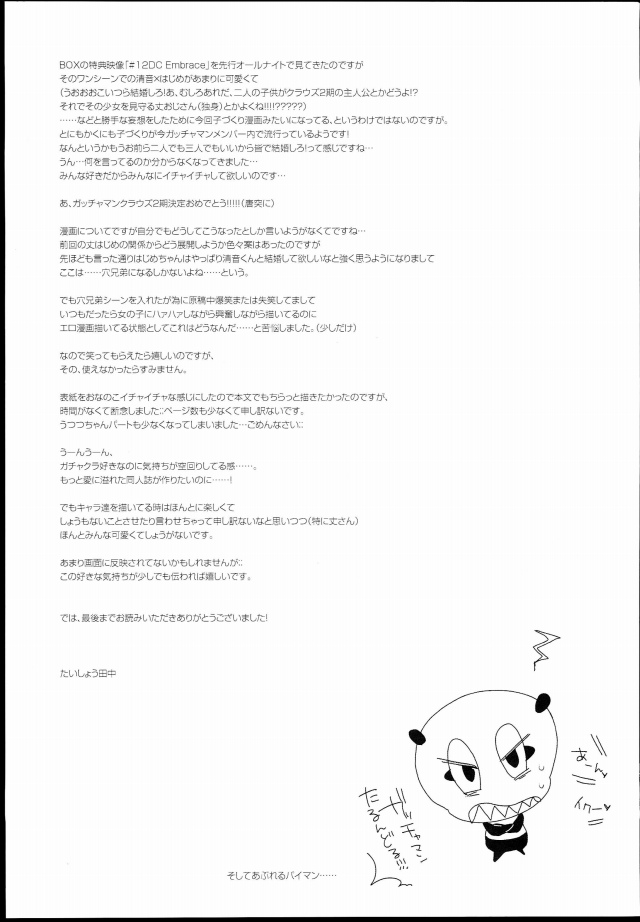 BOXの特典映像「#12DC Embrace」を先行オールナイトで見てきたのですが
そのワンシーンでの清音×はじめがあまりに可愛くて
(うおおおおこいつら結婚しろ!あ、むしろあれだ、二人の子供がクラウズ2期の主人公とかどうよ!?
それでその少女を見守る丈おじさん(独身)とかよくね!!!!?????)
……などと勝手な妄想をしたために今回子づくり漫画みたいになってる、というわけではないのですが。
とにもかくにも子づくりが今ガッチャマンメンバー内で流行っているようです!
なんというかもうお前ら二人でも三人でもいいから皆で結婚しろ!って感じですね…
うん…何を言ってるのか分からなくなってきました…
みんな好きだからみんなにイチャイチャして欲しいのです…
あ、ガッチャマンクラウズ2期決定おめでとう!!!!!(唐突に)
漫画についてですが自分でもどうしてこうなったとしか言いようがなくてですね…
前回の丈はじめの関係からどう展開しようか色々案はあったのですが
先ほども言った通りはじめちゃんはやっぱり清音くんと結婚して欲しいなと強く思うようになりまして
ここは……穴兄弟になるしかないよね……という。
でも穴兄弟シーンを入れたが為に原稿中爆笑または失笑してまして
いつもだったら女の子にハァハァしながら興奮しながら描いてるのに
エロ漫画描いてる状態としてこれはどうなんだ……と苦悩しました。(少しだけ)
なので笑ってもらえたら嬉しいのですが、
その、使えなかったらすみません。
表紙をおなのこイチャイチャな感じにしたので本文でもちらっと描きたかったのですが、
時間がなくて断念しました;;ページ数も少なくて申し訳ないです。
うつつちゃんパートも少なくなってしまいました…ごめんなさい;;
うーんうーん、
ガチャクラ好きなのに気持ちが空回りしてる感……。
もっと愛に溢れた同人誌が作りたいのに……!
でもキャラ達を描いてる時はほんとに楽しくて
しょうもないことさせたり言わせちゃって申し訳ないなと思いつつ(特に丈さん)
ほんとみんな可愛くてしょうがないです。
あまり画面に反映されてないかもしれませんが;;
この好きな気持ちが少しでも伝われば嬉しいです。
では、最後までお読みいただきありがとうございました!
たいしょう田中
あーん♥
イクー♥
ガッチャマン
たるんどる!!!
そしてあぶれるパイマン……